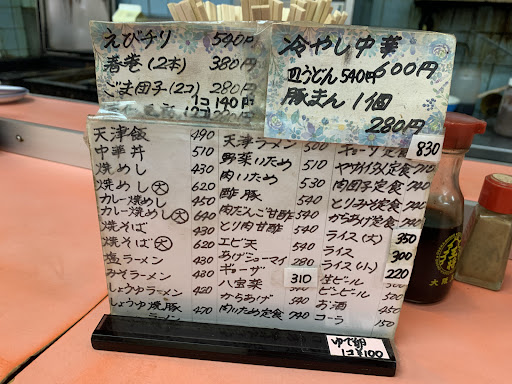 えびチリ 540円
春巻(2本) 380円
ごま団子(2コ) 280円
1コ 140円
冷やし中華 600円
皿うどん 540円
豚まん 1個 280円
天津飯 490
中華丼 510
焼めし 430
焼めし(大) 620
カレー焼めし 450
カレー焼めし(大) 640
焼そば 430
焼そば(大) 620
塩ラーメン 430
みそラーメン 420
しょうゆラーメン
しょうゆ焼豚 470
ラーメン
天津ラーメン 500
野菜いため 510
肉いため 530
酢豚 540
肉だんご甘酢 540
とり肉甘酢 540
エビ天 540
あげシューマイ 280
ギョーザ 310
八宝菜
からあげ
肉いため定食 740
ギョーザ定食 830
ヤサイイタメ定食
肉団子定食
とりみそ定食
からあげ定食
ライス(大) 350
ライス 300
ライス(小) 220
生ビール
ビンビール 500
お酒
コーラ 150
ゆで卵
1コ ¥100